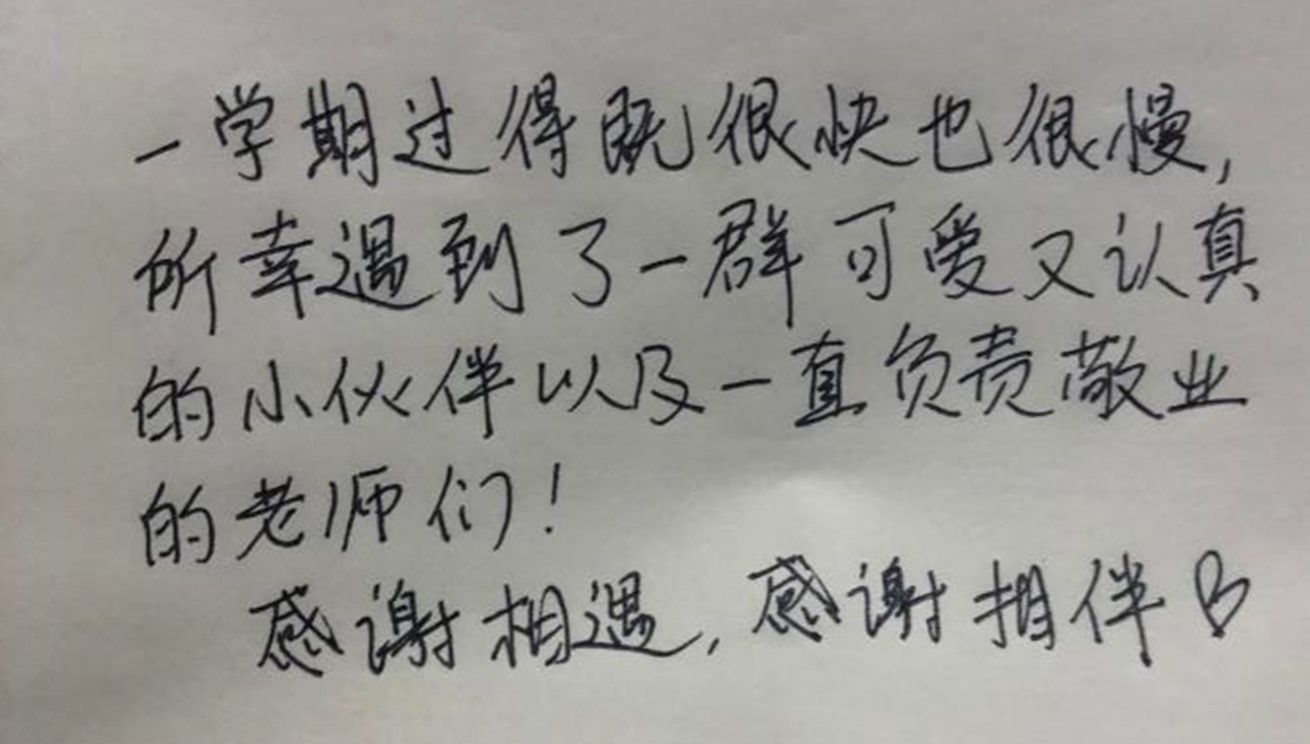 一学期过得既很快也很慢，
所幸遇到了一群可爱又认真
的小伙伴以及一直负责敬业
的老师们！
感谢相遇，感谢相伴♡